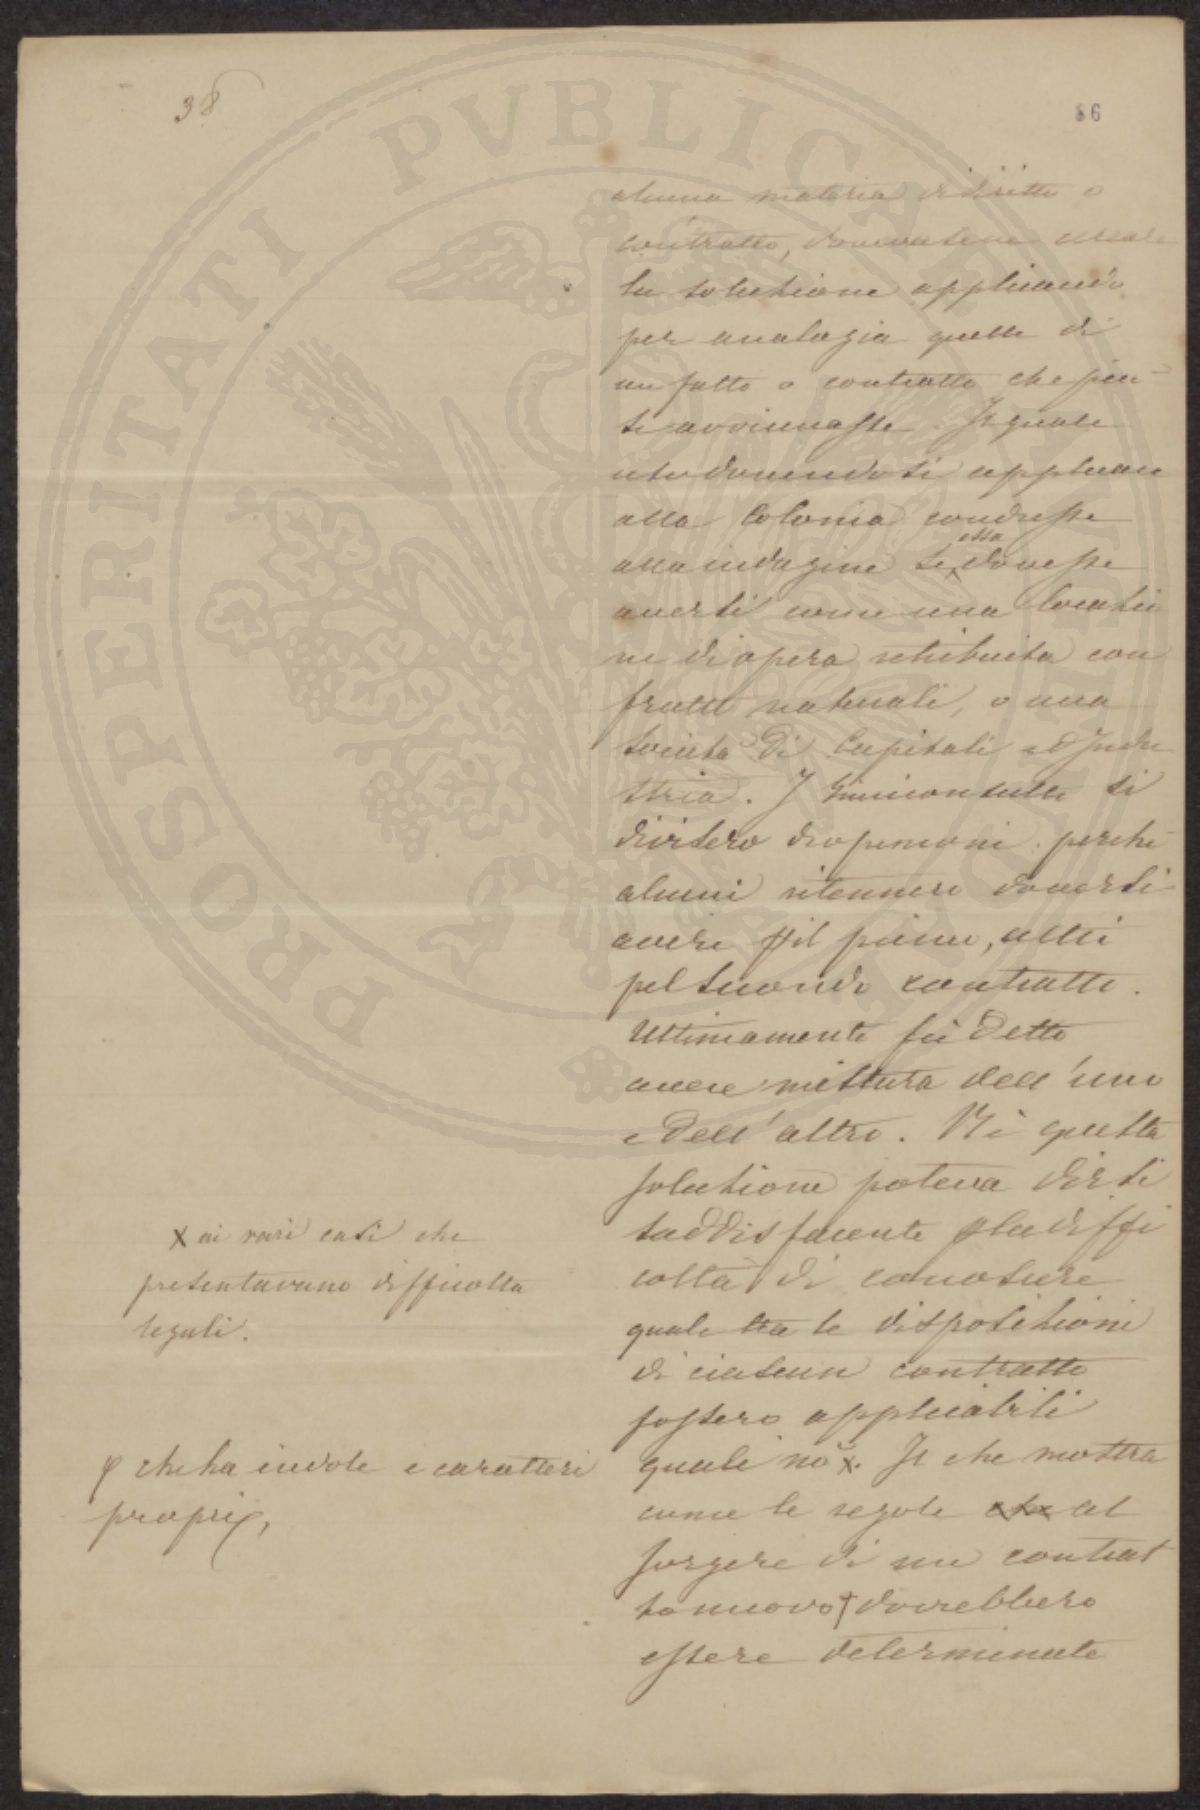 38
86
alcuna materia di diritto o
contratto, dovevasene cercare
la solutione applicando
per analogia quelle di
un fatto o contratto che più
si avvicinasse. Il quale
uso dovendosi applicare
alla Colonia condusse
alla indagine se essa dovesse
aversi come una locatio
ne di opera retribuita con
frutti naturali, o una
società di Capitali ed Indu
stria. I Giureconsulti si
divisero di openioni perchè
alcuni ritennero doversi
avere pel primo, altri
pel secondo contratto.
Ultimamente fù detto
avere mistura dell'uno
e dell'altro. Nè questa
solutione poteva dirsi
saddisfacente per la diffi
coltà di conoscere
quale tra le dispositioni
di ciascun contratto
fossero applicabili
quali nò x. Il che mostra
come le regole che al
sorgere di un contrat
to nuovo dovrebbero
essere determinate
x ai varî casi che
presentavano difficolta
legali.
che ha indole e caratteri
proprî,
PROSPERITATI PVBLICAE